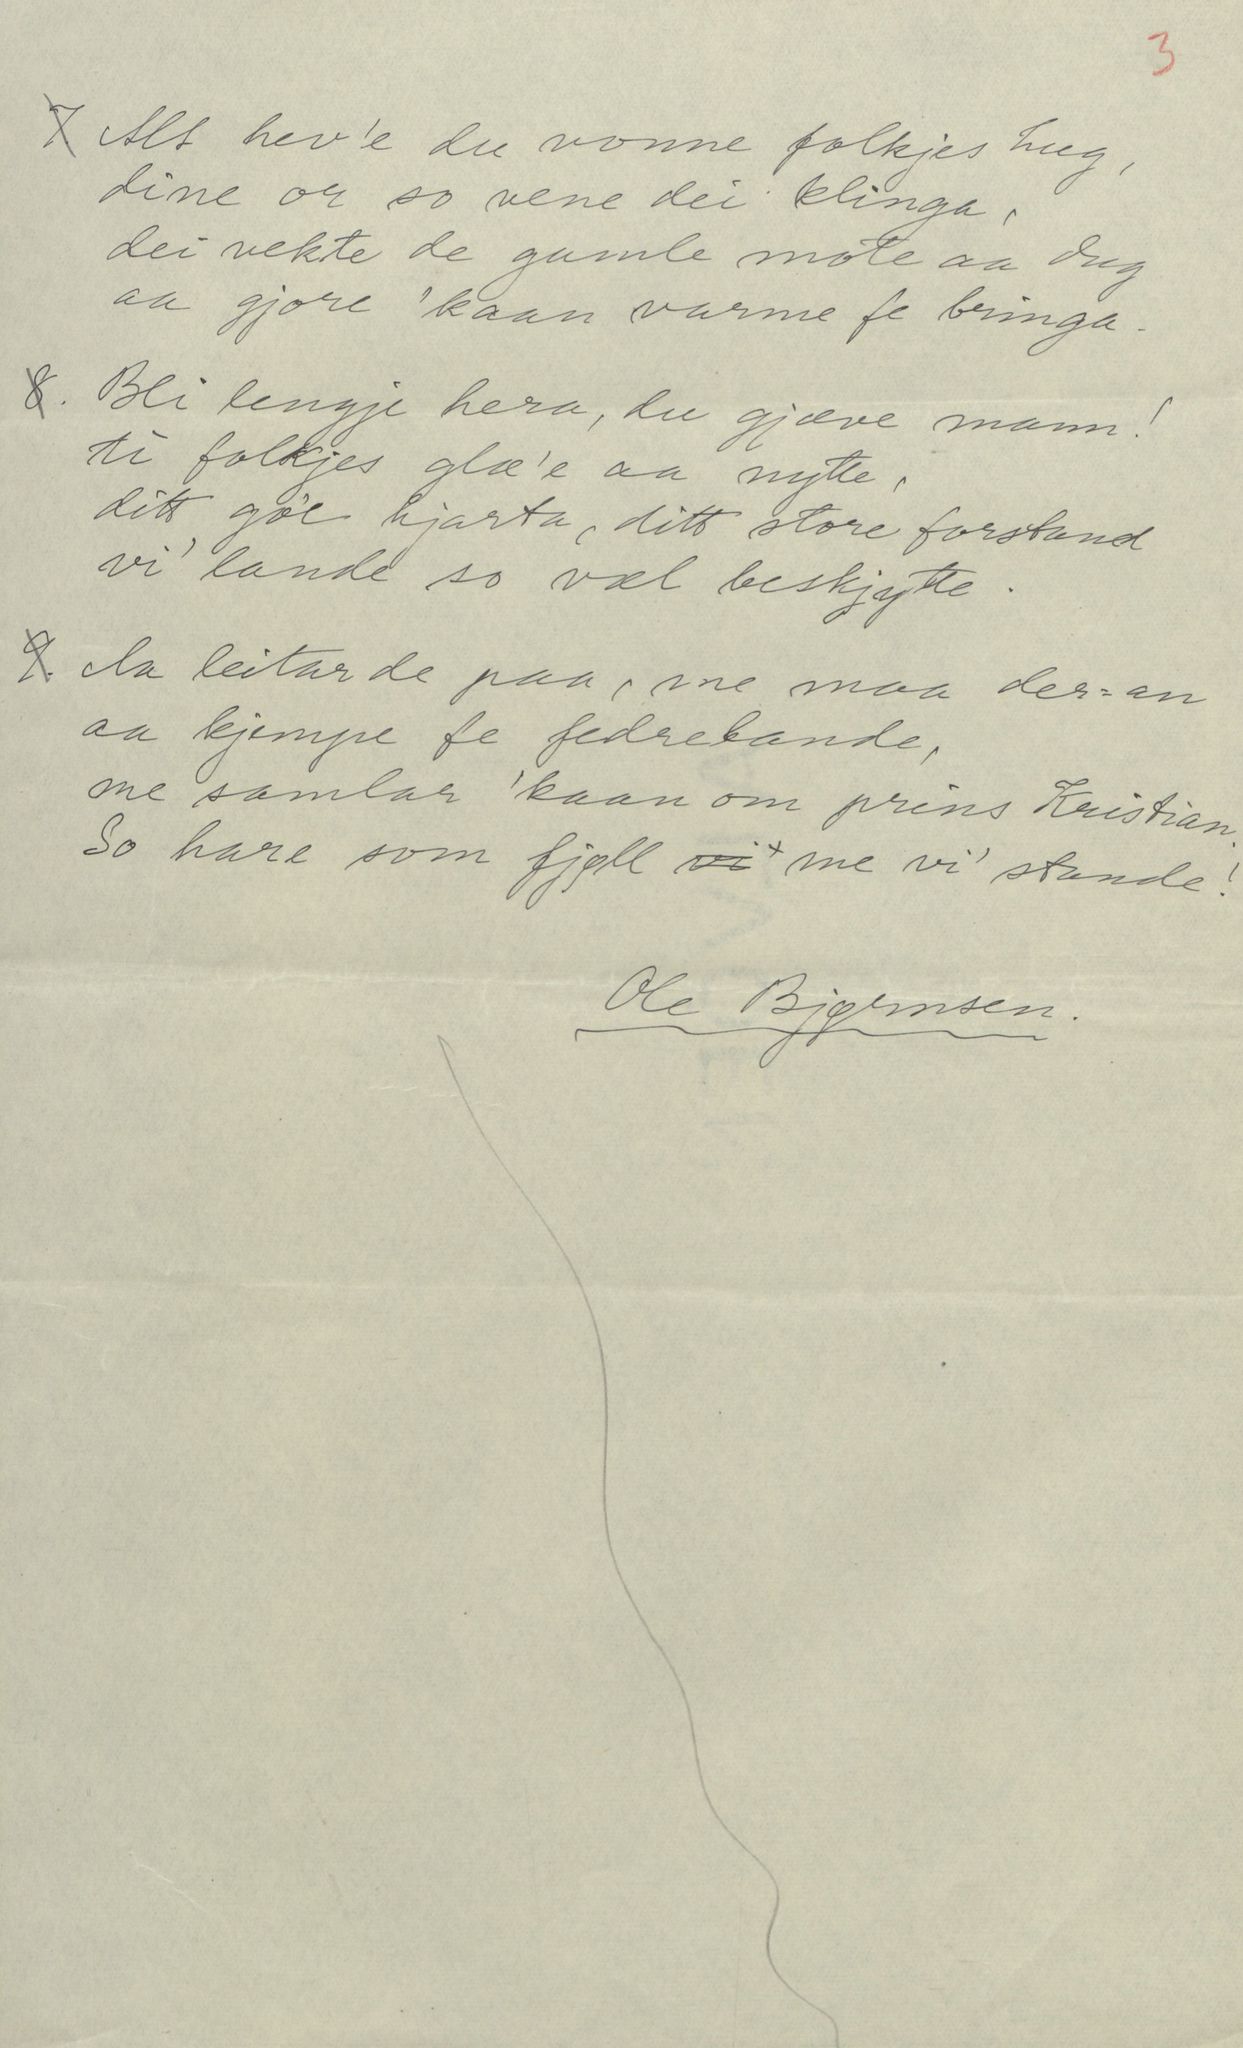 3
7 Alt hev'e du vonne folkjes hug,
dine or so vene dei klinga,
dei vekte de gamle mote aa dug
aa gjore 'kaan varme fe bringa.
8. Bli lengje hera, du gjæve mann!
ti folkjes glæ'e aa nytte,
ditt go'e hjarta, ditt store forstand
vi' lande so væl beskjytte.
9. Aa leitar de paa, me maa der=an
aa kjempe fe fedrelande,
me samlar 'kaan om prins Kristian.
So hare som fjøll vi me vi' stande!
Ole Bjørnsen.